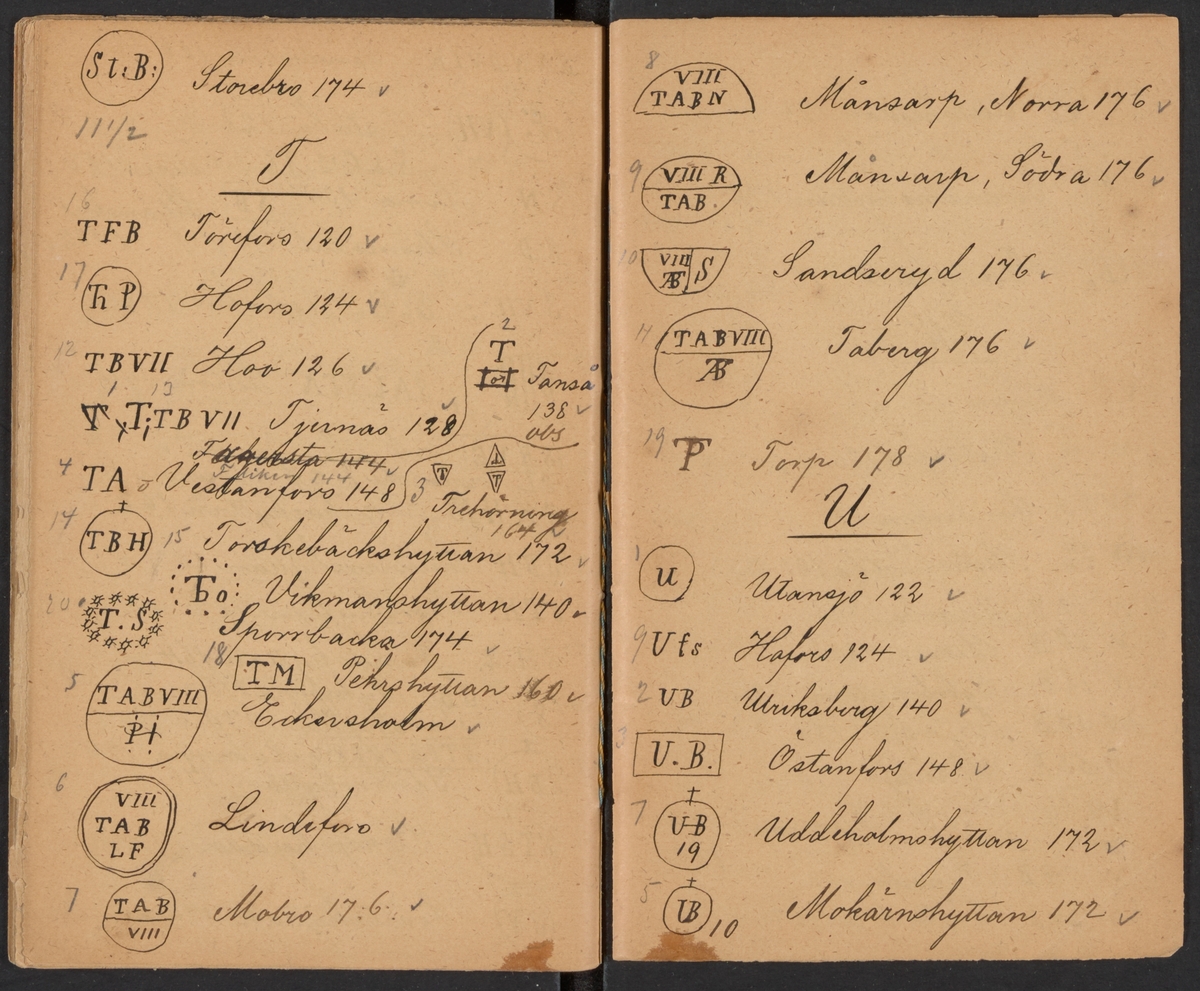 St:B: Storebro 174 v
11 1/2
T
16
TFB Törefors 120 v
17
Th P Hofors 124 v
12
TBVII Hoo 126 v
1 13
T T; TBVII Tjernäs 128 v
2
T
Tanså
138 v
obs
Fagersta 144 v
4 TA Vestanfors 148
3 T T T
Trehörning
164
14
TBH 15 Torskebäckshyttan 172 v
To Vikmanshyttan 140 v
20 T.S Sporrbacka 174 v
18 TM Pehrshyttan 160 v
5 TABVIII
PH
Eckersholm v
6
VIII
TAB
LF
Lindefors v
7
TAB
VIII
Mobro 176. v
8
VIII
TABN
Månsarp, Norra 176 v
9
VIII R
TAB.
Månsarp, Södra 176 v
10
VIII
TAB S
Sandseryd 176 v
11
TABVIII
TAB
Taberg 176 v
19
TP Torp 178 v
U
1
U Utansjö 122 v
9 Ufs Hofors 124 v
2 UB Ulriksberg 140 v
3
U.B. Östanfors 148 v
7
UB
19
Uddeholmshyttan 172 v
5
UB 10 Mokärnshyttan 172 v